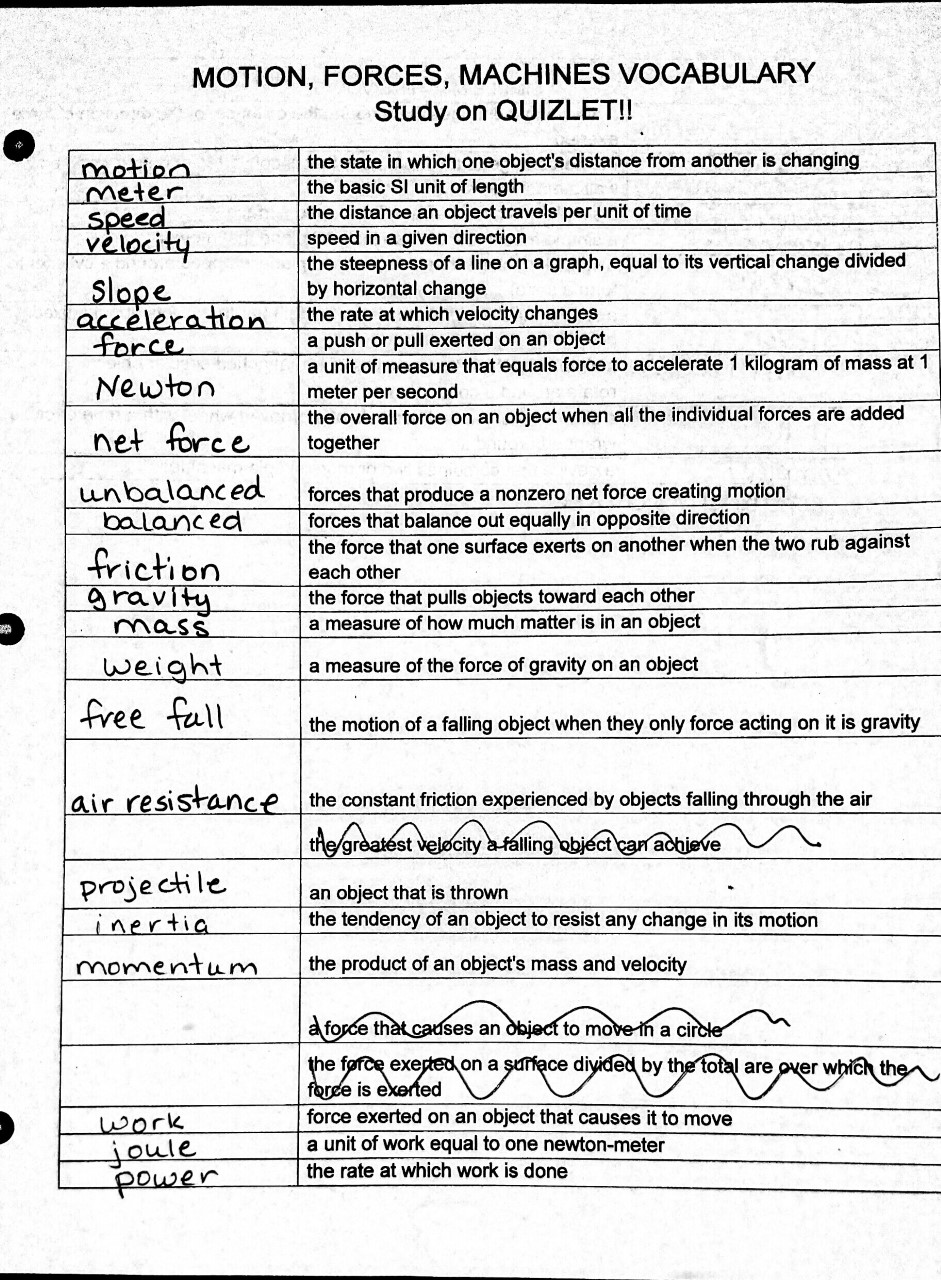 MOTION, FORCES, MACHINES VOCABULARY
Study on QUIZLET!!
motion the state in which one object's distance from another is changing
meter the basic SI unit of length
speed the distance an object travels per unit of time
velocity speed in a given direction
the steepness of a line on a graph, equal to its vertical change divided
Slope by horizontal change
acceleration the rate at which velocity changes
force a push or pull exerted on an object
a unit of measure that equals force to accelerate 1 kilogram of mass at 1
Newton meter per second
the overall force on an object when all the individual forces are added
net force together
unbalanced forces that produce a nonzero net force creating motion
balanced forces that balance out equally in opposite direction
the force that one surface exerts on another when the two rub against
friction each other
gravity the force that pulls objects toward each other
mass a measure of how much matter is in an object
weight a measure of the force of gravity on an object
free fall the motion of a falling object when they only force acting on it is gravity
air resistance the constant friction experienced by objects falling through the air
the greatest velocity a falling object can achieve
projectile an object that is thrown
inertia the tendency of an object to resist any change in its motion
momentum the product of an object's mass and velocity
a force that causes an object to move in a circle
the force exerted on a surface divided by the total are over which the
force is exerted
work force exerted on an object that causes it to move
joule a unit of work equal to one newton-meter
power the rate at which work is done